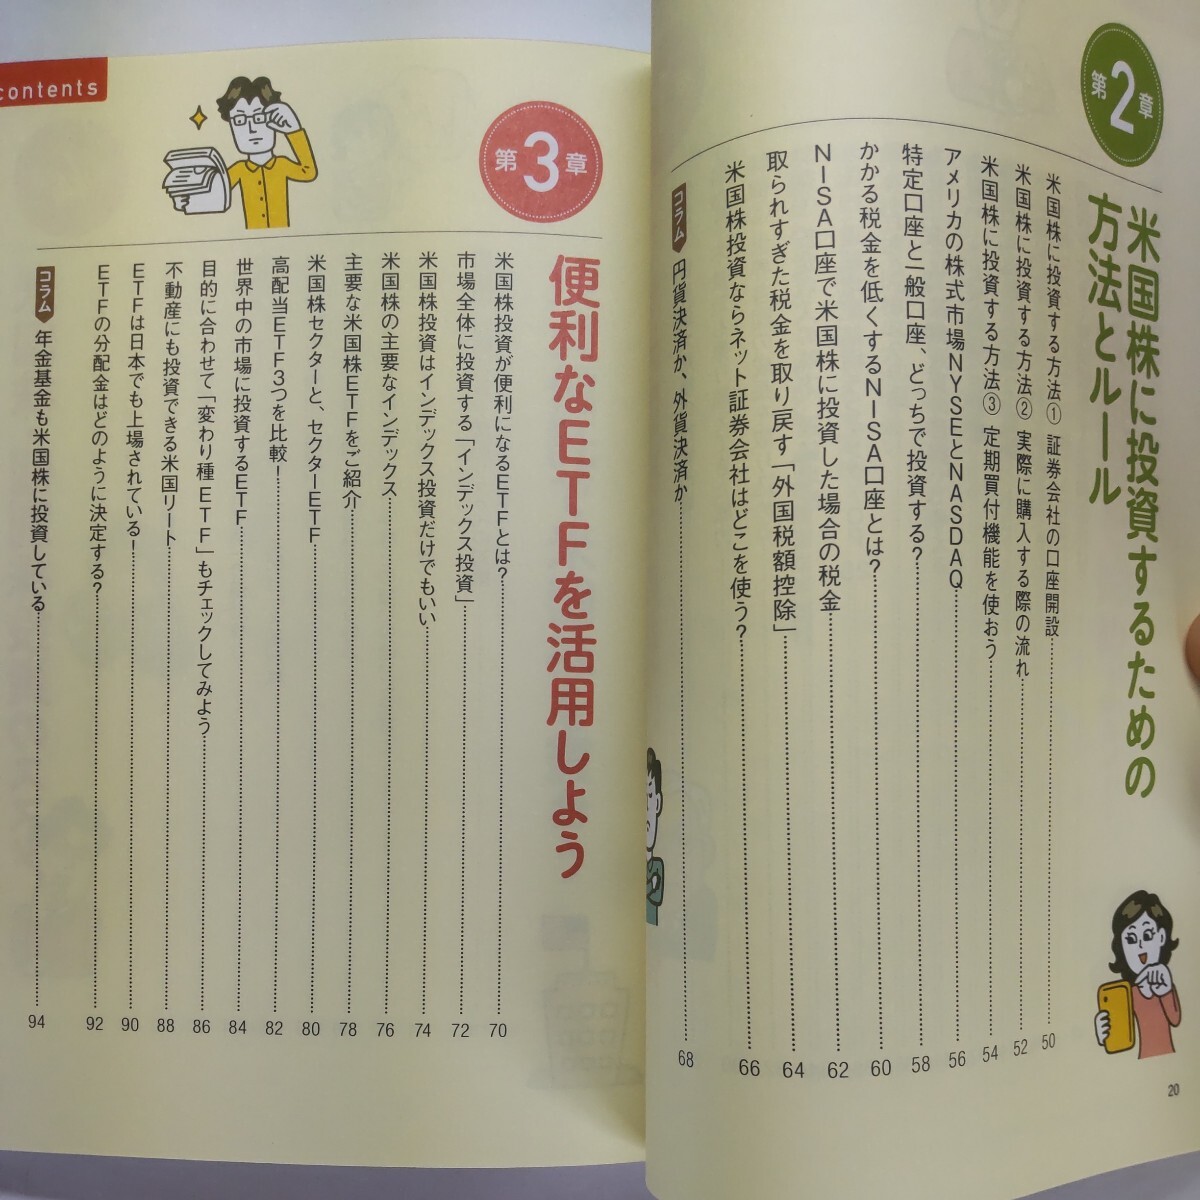 第2章
米国株に投資するための
方法とルール
米国株に投資する方法① 証券会社の口座開設 50
米国株に投資する方法② 実際に購入する際の流れ 52
米国株に投資する方法③ 定期買付機能を使おう 54
アメリカの株式市場NYSEとNASDAQ 56
特定口座と一般口座、どっちで投資する? 58
かかる税金を低くするNISA口座とは? 60
NISA口座で米国株に投資した場合の税金 62
取られすぎた税金を取り戻す「外国税額控除」 64
米国株投資ならネット証券会社はどこを使う? 66
コラム 円貨決済か、外貨決済か 68
20
contents
第3章
便利なETFを活用しよう
米国株投資が便利になるETFとは? 70
市場全体に投資する「インデックス投資」 72
米国株投資はインデックス投資だけでもいい 74
米国株の主要なインデックス 76
主要な米国株ETFをご紹介 78
米国株セクターと、セクターETF 80
高配当ETF3つを比較! 82
世界中の市場に投資するETF 84
目的に合わせて「変わり種ETF」もチェックしてみよう 86
不動産にも投資できる米国リート 88
ETFは日本でも上場されている! 90
ETFの分配金はどのように決定する? 92
コラム 年金基金も米国株に投資している 94